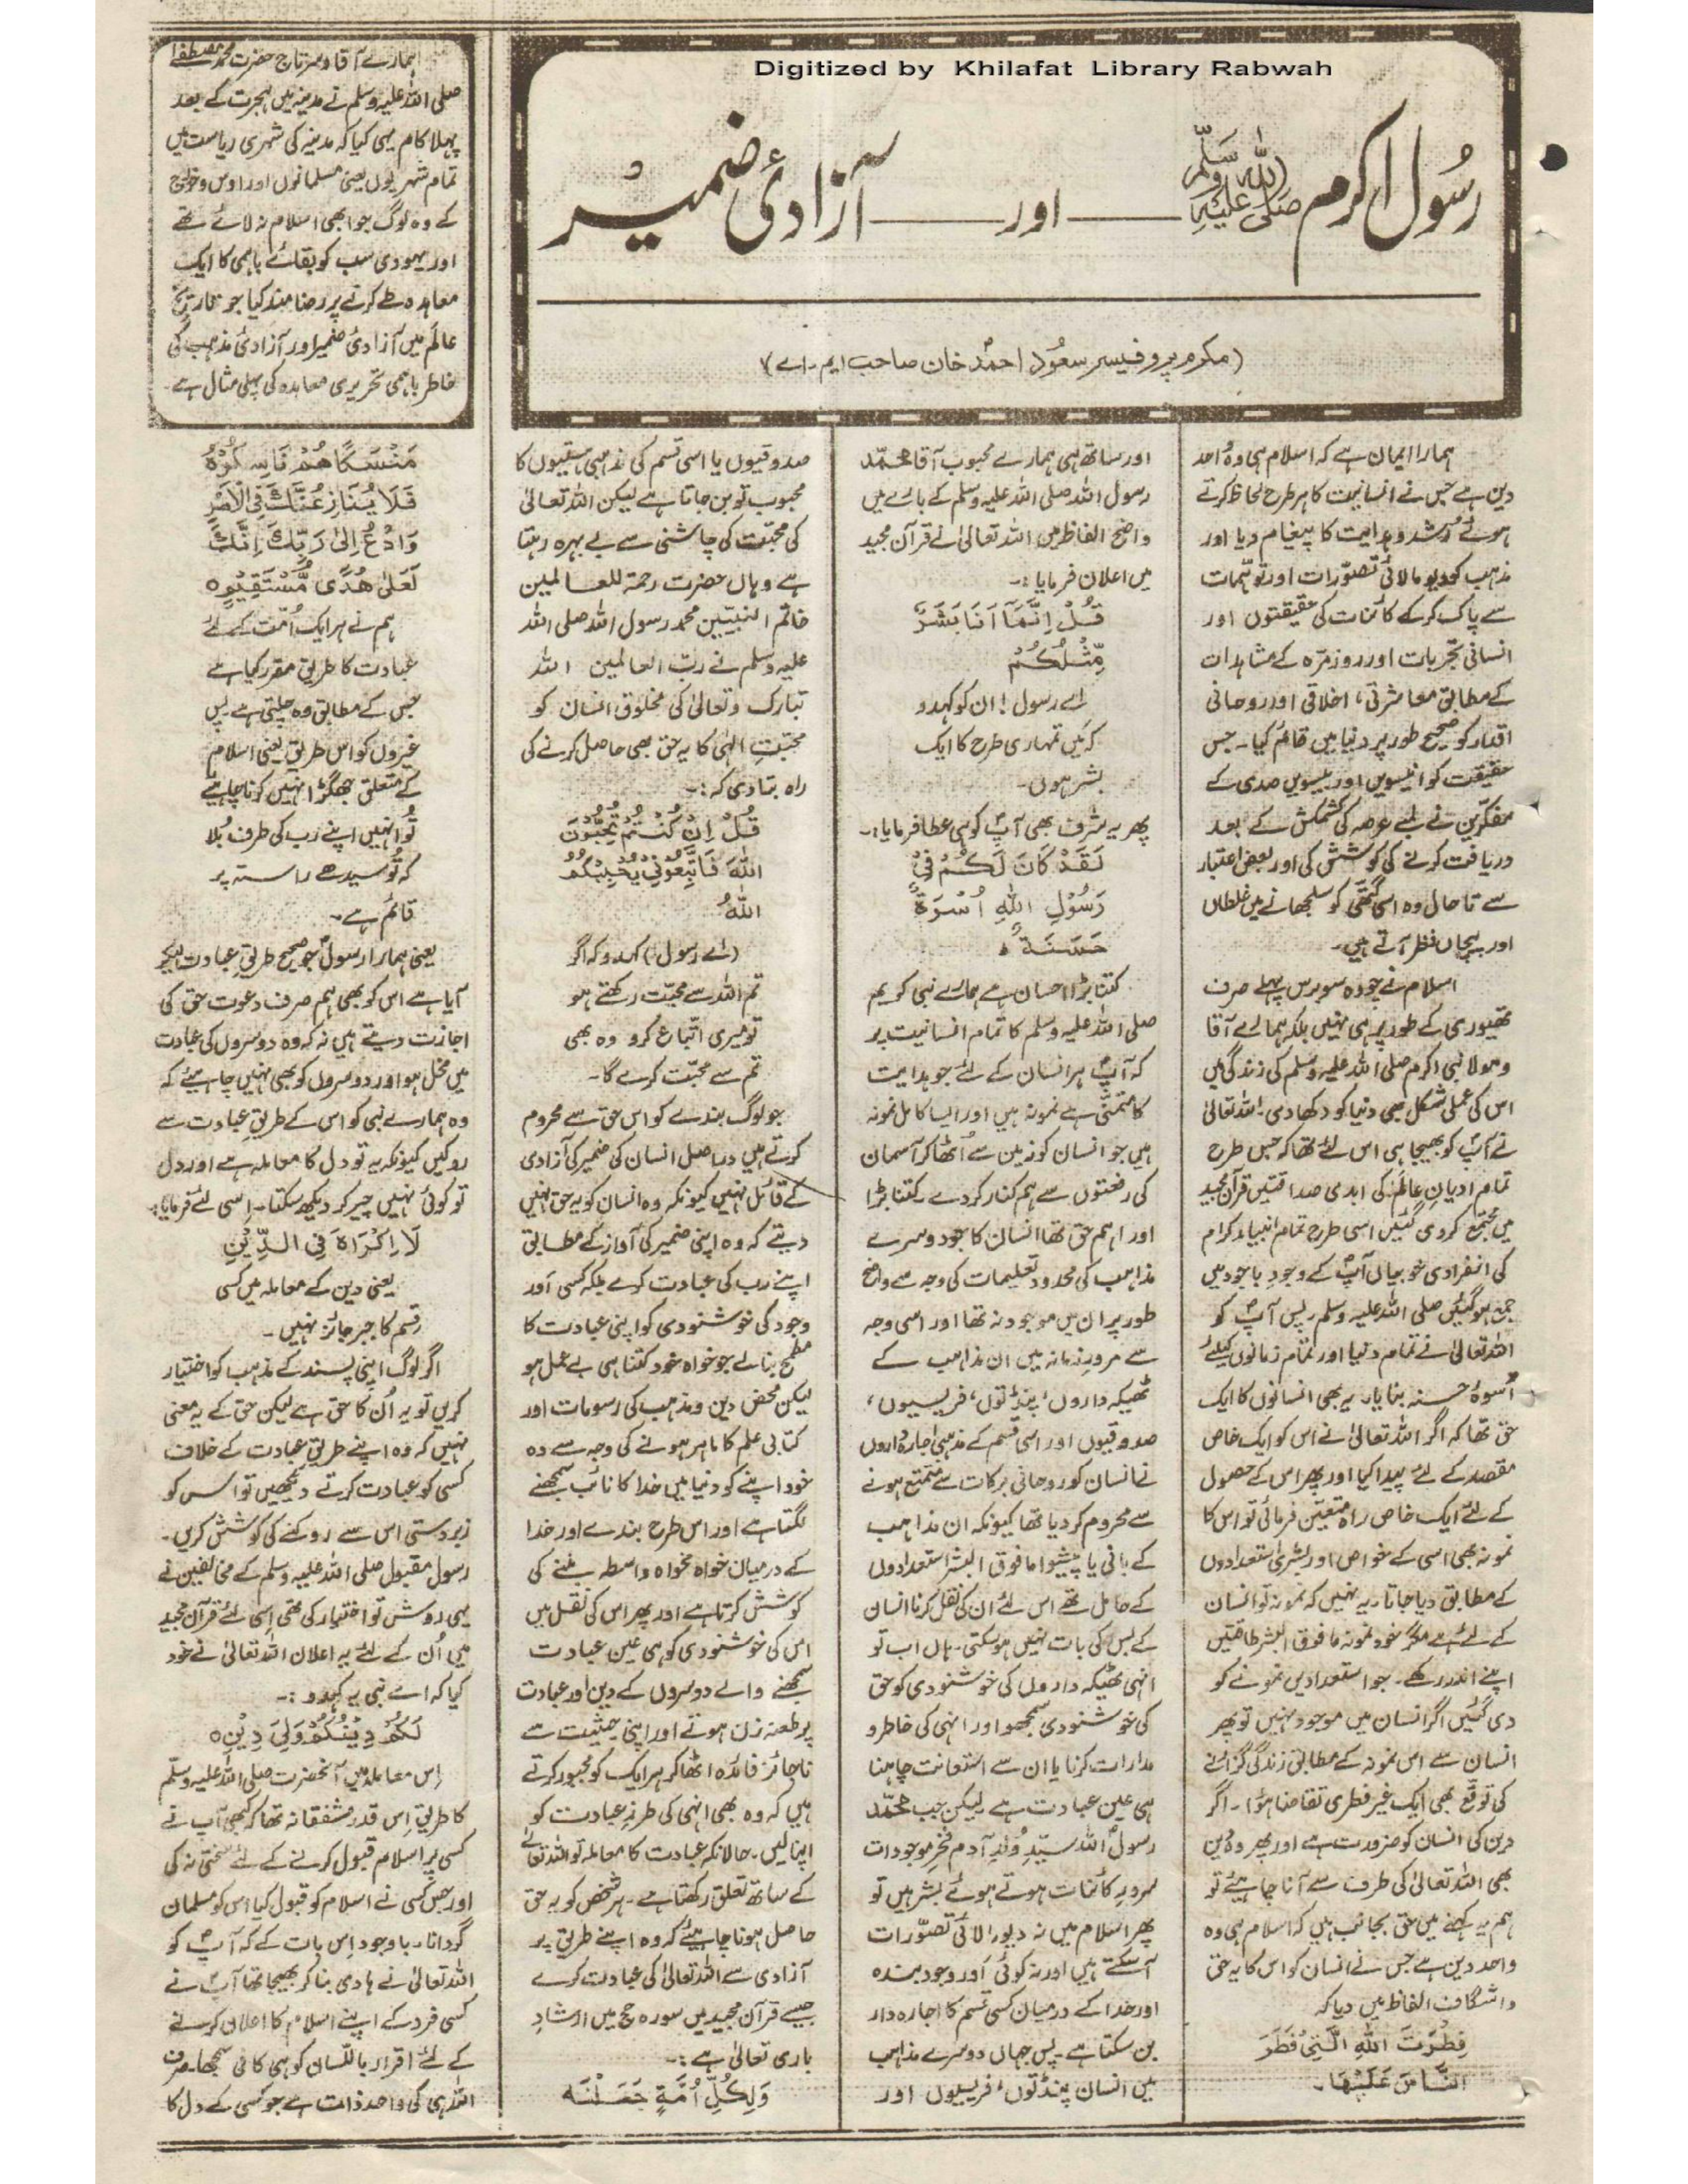 Digitized by Khilafat Library Rabwah
رسول اکرم صلی اللہ علیہ وسلم — اور — آزادیٔ ضمیر
(مکرم پروفیسر سعود احمد خان صاحب ایم۔اے)
ہمارے آقا و سرتاج حضرت محمد مصطفےٰ
صلی اللہ علیہ وسلم نے مدینہ میں ہجرت کے بعد
پہلا کام یہی کیا کہ مدینہ کی شہری ریاست میں
تمام شہریوں یعنی مسلمانوں اور اوس و خزرج
کے وہ لوگ جو ابھی اسلام نہ لائے تھے
اور یہودی سب کو بقائے باہمی کا ایک
معاہدہ طے کرنے پر رضامند کیا جو تاریخ
عالَم میں آزادیٔ ضمیر اور آزادیٔ مذہب کی
خاطر باہمی تحریری معاہدہ کی پہلی مثال ہے۔
ہمارا ایمان ہے کہ اسلام ہی وہ واحد
دین ہے جس نے انسانیت کا ہر طرح لحاظ کرتے
ہوئے رُشد و ہدایت کا پیغام دیا اور
مذہب کو دیومالائی تصوّرات اور توہّمات
سے پاک کرکے کائنات کی حقیقتوں اور
انسانی تجربات اور روزمرّہ کے مشاہدات
کے مطابق معاشرتی، اخلاقی اور روحانی
اقدار کو صحیح طور پر دنیا میں قائم کیا۔ جس
حقیقت کو انیسویں اور بیسویں صدی کے
مفکّرین نے لمبے عرصہ کی کشمکش کے بعد
دریافت کرنے کی کوشش کی اور بعض اعتبار
سے تا حال وہ اسی گتھی کو سلجھانے میں غلطاں
اور پیچاں نظر آتے ہیں۔
اسلام نے چودہ سو برس پہلے صرف
تھیوری کے طور پر ہی نہیں بلکہ ہمارے آقا
و مولا نبی اکرم صلی اللہ علیہ وسلم کی زندگی میں
اس کی عملی شکل بھی دنیا کو دکھا دی۔ اللہ تعالیٰ
نے آپؐ کو بھیجا ہی اس لئے تھا کہ جس طرح
تمام ادیانِ عالم کی ابدی صداقتیں قرآن مجید
میں مجتمع کر دی گئیں اسی طرح تمام انبیاء کرام
کی انفرادی خوبیاں آپؐ کے وجودِ باجود میں
جمع ہو گئیں صلی اللہ علیہ وسلم۔ پس آپؐ کو
اللہ تعالیٰ نے تمام دنیا اور تمام زمانوں کیلئے
اُسوۂ حسنہ بنایا۔ یہ بھی انسانوں کا ایک
حق تھا کہ اگر اللہ تعالیٰ نے اس کو ایک خاص
مقصد کے لئے پیدا کیا اور پھر اس کے حصول
کے لئے ایک خاص راہ متعیّن فرمائی تو اس کا
نمونہ بھی اسی کے خواص اور بشری استعدادوں
کے مطابق دیا جاتا۔ یہ نہیں کہ نمونہ تو انسان
کے لئے ہے مگر خود نمونہ مافوق البشر طاقتیں
اپنے اندر رکھے۔ جو استعدادیں نمونے کو
دی گئیں اگر انسان میں موجود نہیں تو پھر
انسان سے اس نمونہ کے مطابق زندگی گزارنے
کی توقّع بھی ایک غیر فطری تقاضا ہوا۔ اگر
دین کی انسان کو ضرورت ہے اور پھر وہ دین
بھی اللہ تعالیٰ کی طرف سے آنا چاہیئے تو
ہم یہ کہنے میں حق بجانب ہیں کہ اسلام ہی وہ
واحد دین ہے جس نے انسان کو اس کا یہ حق
واشگاف الفاظ میں دیا کہ
فِطْرَتَ اللہِ الَّتِیْ فَطَرَ
النَّاسَ عَلَیْھَا۔
اور ساتھ ہی ہمارے محبوب آقا محمّد
رسول اللہ صلی اللہ علیہ وسلم کے بارے میں
واضح الفاظ میں اللہ تعالیٰ نے قرآن مجید
میں اعلان فرمایا:۔
قُلْ اِنَّمَآ اَنَا بَشَرٌ
مِّثْلُکُمْ
اے رسول! ان کو کہدو
کہ مَیں تمہاری طرح کا ایک
بشر ہوں۔
پھر یہ شرف بھی آپؐ کو ہی عطا فرمایا:۔
لَقَدْ کَانَ لَکُمْ فِیْ
رَسُوْلِ اللہِ اُسْوَۃٌ
حَسَنَۃٌ ہ
کتنا بڑا احسان ہے ہمارے نبی کریم
صلی اللہ علیہ وسلم کا تمام انسانیت پر
کہ آپؐ ہر انسان کے لئے جو ہدایت
کا متمنّی ہے نمونہ ہیں اور ایسا کامل نمونہ
ہیں جو انسان کو زمین سے اُٹھا کر آسمان
کی رفعتوں سے ہم کنار کر دے۔ کتنا بڑا
اور اہم حق تھا انسان کا جو دوسرے
مذاہب کی محدود تعلیمات کی وجہ سے واضح
طور پر ان میں موجود نہ تھا اور اسی وجہ
سے مرورِ زمانہ میں ان مذاہب کے
ٹھیکہ داروں، پنڈتوں، فریسیوں،
صدوقیوں اور اسی قسم کے مذہبی اجارہ داروں
نے انسان کو روحانی برکات سے متمتع ہونے
سے محروم کر دیا تھا کیونکہ ان مذاہب
کے بانی یا پیشوا مافوق البشر استعدادوں
کے حامل تھے اس لئے ان کی نقل کرنا انسان
کے بس کی بات نہیں ہو سکتی۔ ہاں اب تو
انہی ٹھیکہ داروں کی خوشنودی کو حق
کی خوشنودی سمجھو اور انہی کی خاطر و
مدارات کرنا یا ان سے استعانت چاہنا
ہی عین عبادت ہے لیکن جب محمّد
رسول اللہ سیّدِ وُلدِ آدم فخرِ موجودات
سرورِ کائنات ہوتے ہوئے بشر ہیں تو
پھر اسلام میں نہ دیومالائی تصوّرات
آ سکتے ہیں اور نہ کوئی اَور وجود بندہ
اور خدا کے درمیان کسی قسم کا اجارہ دار
بن سکتا ہے۔ پس جہاں دوسرے مذاہب
میں انسان پنڈتوں، فریسیوں اور
صدوقیوں یا اسی قسم کی مذہبی ہستیوں کا
محبوب تو بن جاتا ہے لیکن اللہ تعالیٰ
کی محبّت کی چاشنی سے بے بہرہ رہتا
ہے وہاں حضرت رحمۃ للعالمین
خاتم النبیّین محمد رسول اللہ صلی اللہ
علیہ وسلم نے ربّ العالمین اللہ
تبارک و تعالیٰ کی مخلوق انسان کو
محبّتِ الٰہی کا یہ حق بھی حاصل کرنے کی
راہ بتا دی کہ:۔
قُلْ اِنْ کُنْتُمْ تُحِبُّوْنَ
اللہَ فَاتَّبِعُوْنِیْ یُحْبِبْکُمُ
اللہُ
(اے رسول) کہدو کہ اگر
تم اللہ سے محبّت رکھتے ہو
تو میری اتّباع کرو وہ بھی
تم سے محبّت کرے گا۔
جو لوگ بندے کو اس حق سے محروم
کرتے ہیں دراصل انسان کی ضمیر کی آزادی
کے قائل نہیں کیونکہ وہ انسان کو یہ حق نہیں
دیتے کہ وہ اپنی ضمیر کی آواز کے مطابق
اپنے رب کی عبادت کرے بلکہ کسی اَور
وجود کی خوشنودی کو اپنی عبادت کا
مطمح بنا لے جو خواہ خود کتنا ہی بے عمل ہو
لیکن محض دین و مذہب کی رسومات اور
کتابی علم کا ماہر ہونے کی وجہ سے وہ
خود اپنے کو دنیا میں خدا کا نائب سمجھنے
لگتا ہے اور اس طرح بندے اور خدا
کے درمیان خواہ مخواہ واسطہ بننے کی
کوشش کرتا ہے اور پھر اس کی نقل میں
اس کی خوشنودی کو ہی عین عبادت
سمجھنے والے دوسروں کے دین اور عبادت
پر طعنہ زن ہوتے اور اپنی حیثیت سے
ناجائز فائدہ اٹھا کر ہر ایک کو مجبور کرتے
ہیں کہ وہ بھی انہی کی طرزِ عبادت کو
اپنا لیں۔ حالانکہ عبادت کا معاملہ تو اللہ تعالیٰ
کے ساتھ تعلق رکھتا ہے۔ ہر شخص کو یہ حق
حاصل ہونا چاہیئے کہ وہ اپنے طریق پر
آزادی سے اللہ تعالیٰ کی عبادت کرے
جیسے قرآن مجید میں سورہ حج میں ارشادِ
باری تعالیٰ ہے:۔
وَلِکُلِّ اُمَّۃٍ جَعَلْنَا
مَنْسَکًا ھُمْ نَاسِکُوْہُ
فَلَا یُنَازِعُنَّکَ فِی الْاَمْرِ
وَادْعُ اِلٰی رَبِّکَ اِنَّکَ
لَعَلٰی ھُدًی مُّسْتَقِیْمٍ ہ
ہم نے ہر ایک اُمّت کے لئے
عبادت کا طریق مقرر کیا ہے
جس کے مطابق وہ چلتی ہے۔ پس
غیروں کو اس طریق یعنی اسلام
کے متعلق جھگڑا نہیں کرنا چاہیے
تُو انہیں اپنے رب کی طرف بُلا
کہ تُو سیدھے راستہ پر
قائم ہے۔
یعنی ہمارا رسولؐ جو صحیح طریقِ عبادت لیکر
آیا ہے اس کو بھی ہم صرف دعوت حق کی
اجازت دیتے ہیں نہ کہ وہ دوسروں کی عبادت
میں مخل ہو اور دوسروں کو بھی نہیں چاہیئے کہ
وہ ہمارے نبی کو اس کے طریقِ عبادت سے
روکیں کیونکہ یہ تو دل کا معاملہ ہے اور دل
تو کوئی نہیں چیر کر دیکھ سکتا۔ اسی لئے فرمایا:۔
لَا اِکْرَاہَ فِی الدِّیْنِ
یعنی دین کے معاملہ میں کسی
قسم کا جبر جائز نہیں۔
اگر لوگ اپنی پسند کے مذہب کو اختیار
کریں تو یہ اُن کا حق ہے لیکن حق کے یہ معنی
نہیں کہ وہ اپنے طریقِ عبادت کے خلاف
کسی کو عبادت کرتے دیکھیں تو اس کو
زبردستی اس سے روکنے کی کوشش کریں۔
رسول مقبول صلی اللہ علیہ وسلم کے مخالفین نے
یہی روش تو اختیار کی تھی اسی لئے قرآن مجید
میں اُن کے لئے یہ اعلان اللہ تعالیٰ نے خود
کیا کہ اے نبی یہ کہدو:۔
لَکُمْ دِیْنُکُمْ وَلِیَ دِیْنِ ہ
اِس معاملہ میں آنحضرت صلی اللہ علیہ وسلّم
کا طریق اِس قدر مشفقانہ تھا کہ کبھی آپ نے
کسی پر اسلام قبول کرنے کے لئے سختی نہ کی
اور جس کسی نے اسلام کو قبول کیا اس کو مسلمان
گردانا۔ باوجود اِس بات کے کہ آپؐ کو
اللہ تعالیٰ نے ہادی بنا کر بھیجا تھا آپؐ نے
کسی فرد کے اپنے اسلام کا اعلان کرنے
کے لئے اقرار باللّسان کو ہی کافی سمجھا۔ صرف
اللہ ہی کی واحد ذات ہے جو کسی کے دل کا